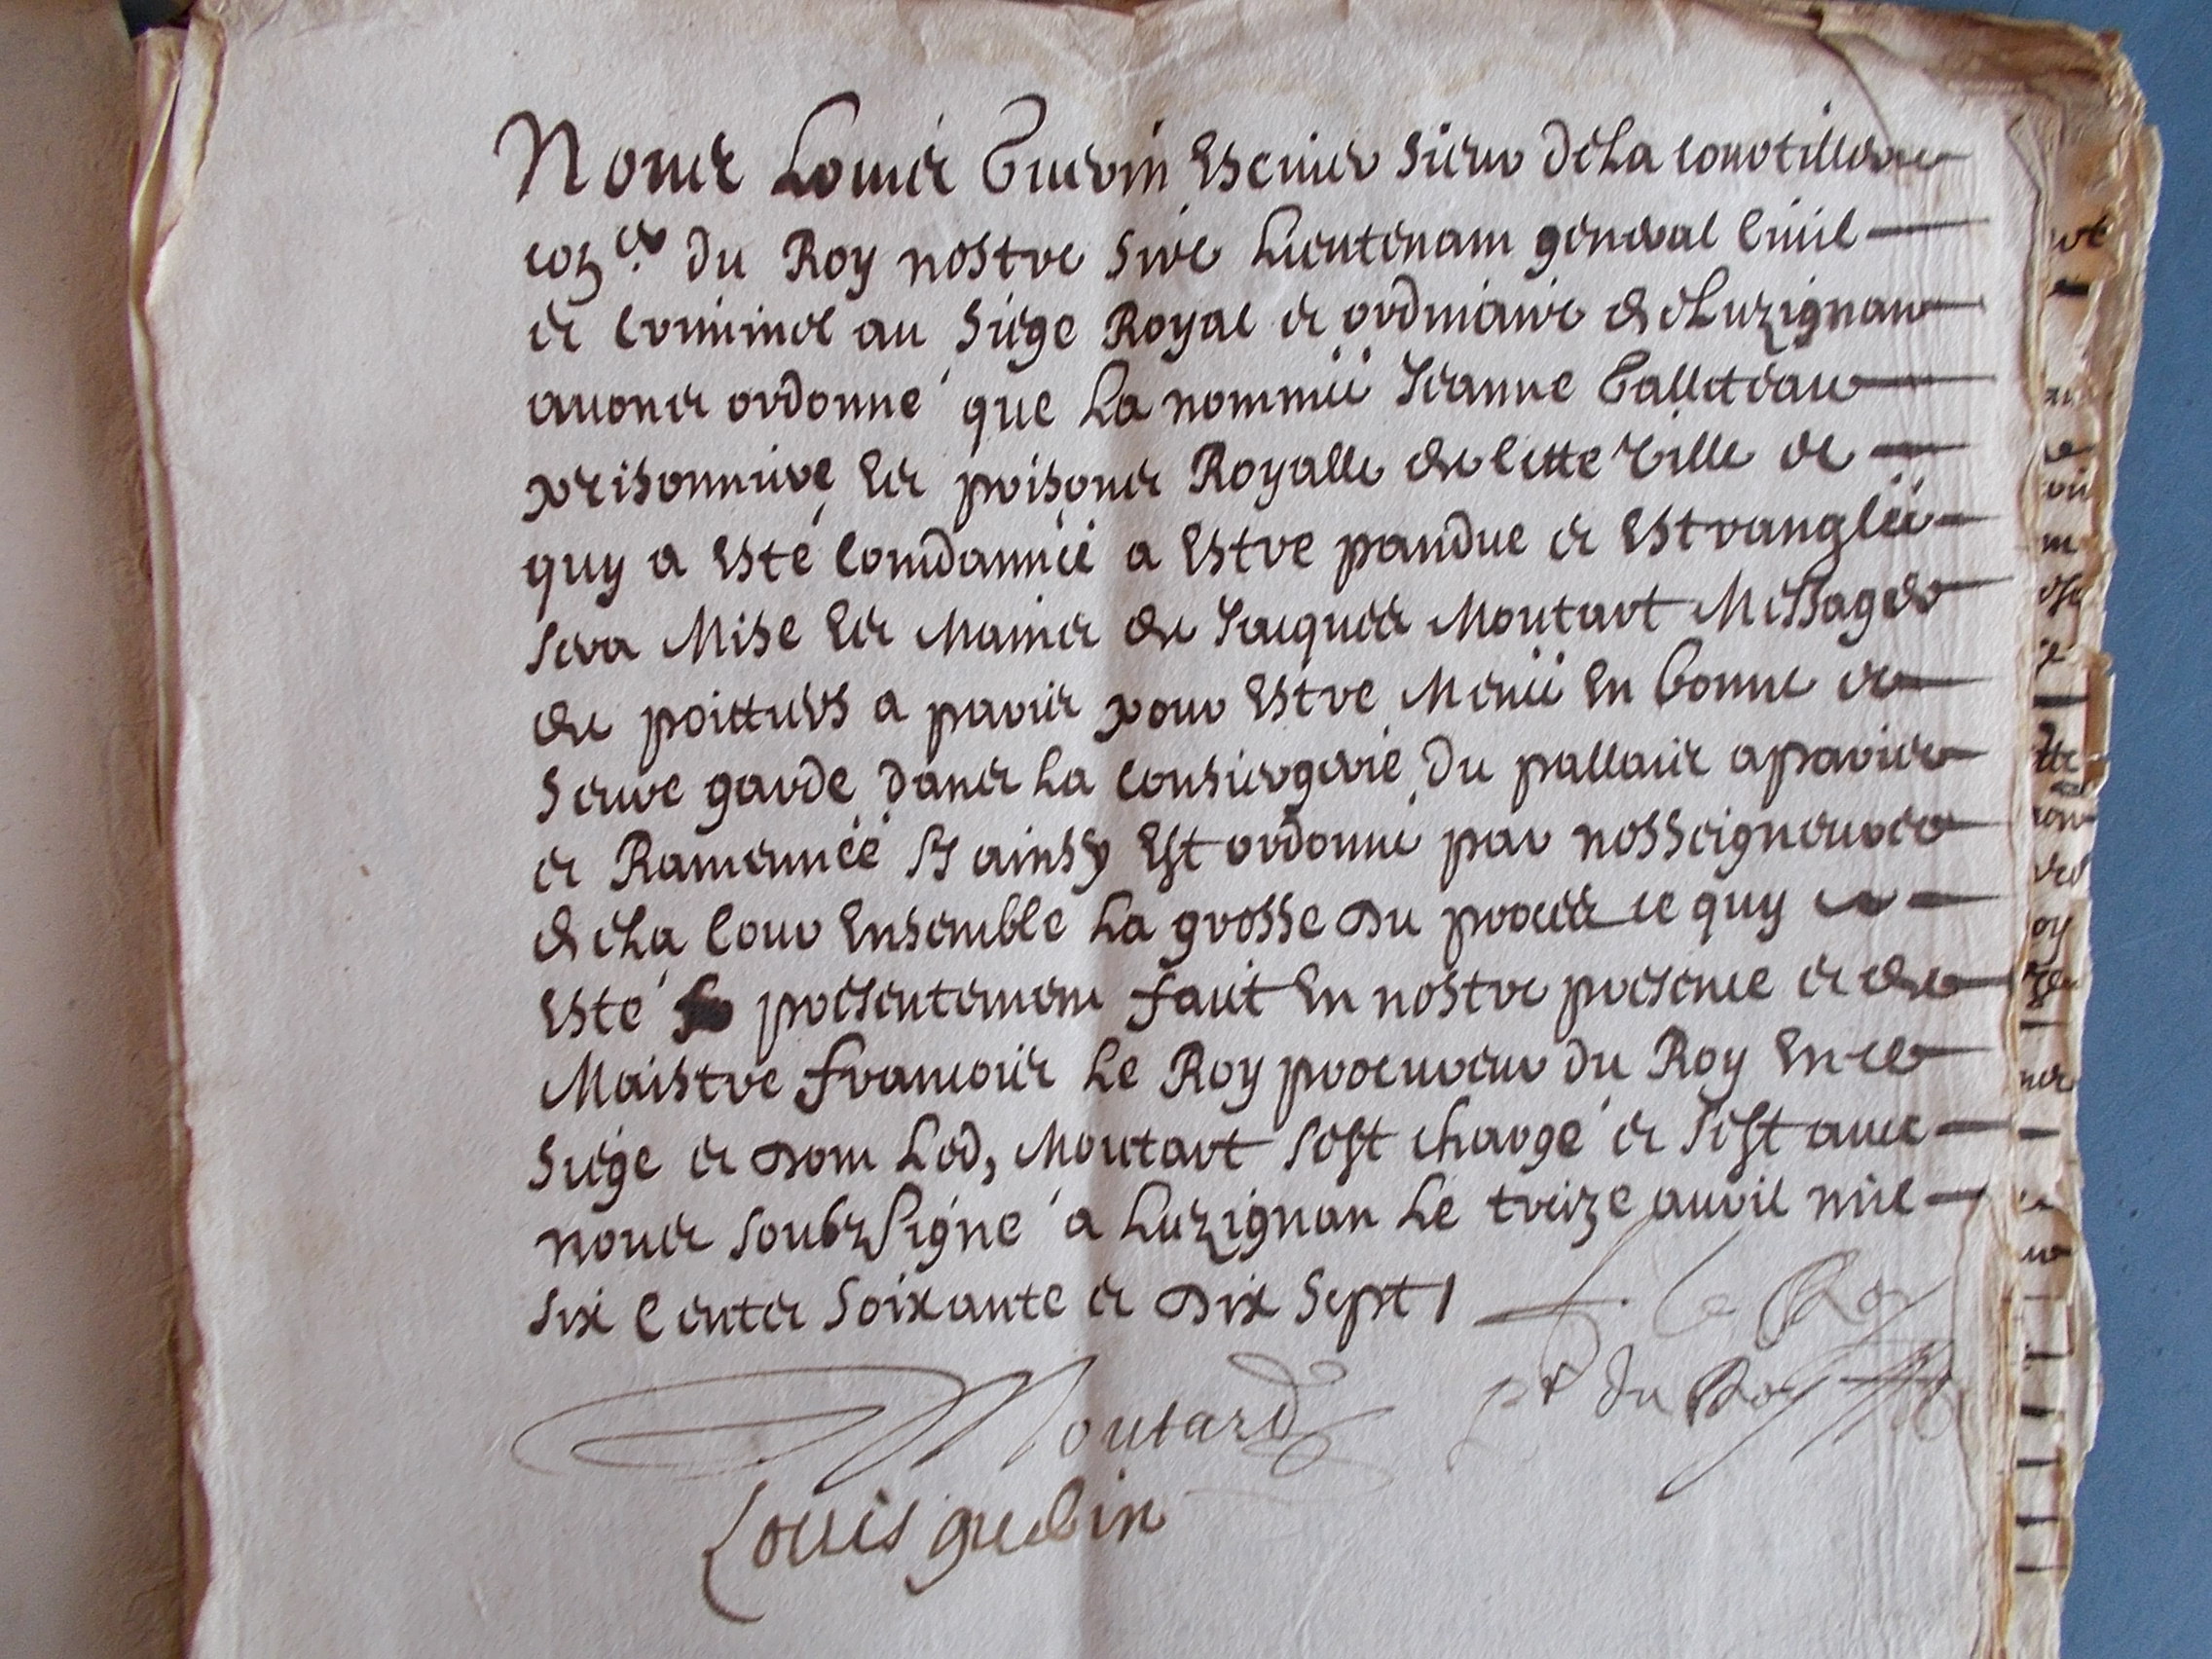 Nous Louis Guerin Escuier Sieur de La Courtillerie
con.er du Roy nostre Sire Lieutenant general Civil
et Criminel au Siege Royal et ordinaire de Luzignan
avons ordonné que La nommée Jeanne Talleteau
prisonniere Es prisons Royalle de Cette Ville de
quy a Esté Condannée a Estre pandue et Estranglée
Sera Mise Es Mains de Jacques Moutart Messager
de poictiers a paris pour Estre Menée En bonne et
Seure garde dans La Consiergerie du pallais a paris
et Ramennée Sy ainsy Est ordonné par nosseigneurs
de La Cour Ensemble La grosse du procés ce quy a
Esté presentement faict En nostre presence et de
Maistre francois Le Roy procureur du Roy En ce
Siege et dont Led, Moutart Sest chargé et Sest avec
nous Soubzsigné a Luzignan Le treize avril mil
Six Cents Soixante et dix Sept /
f. le Roy
pr du Roy
Moutard
Louis guerin